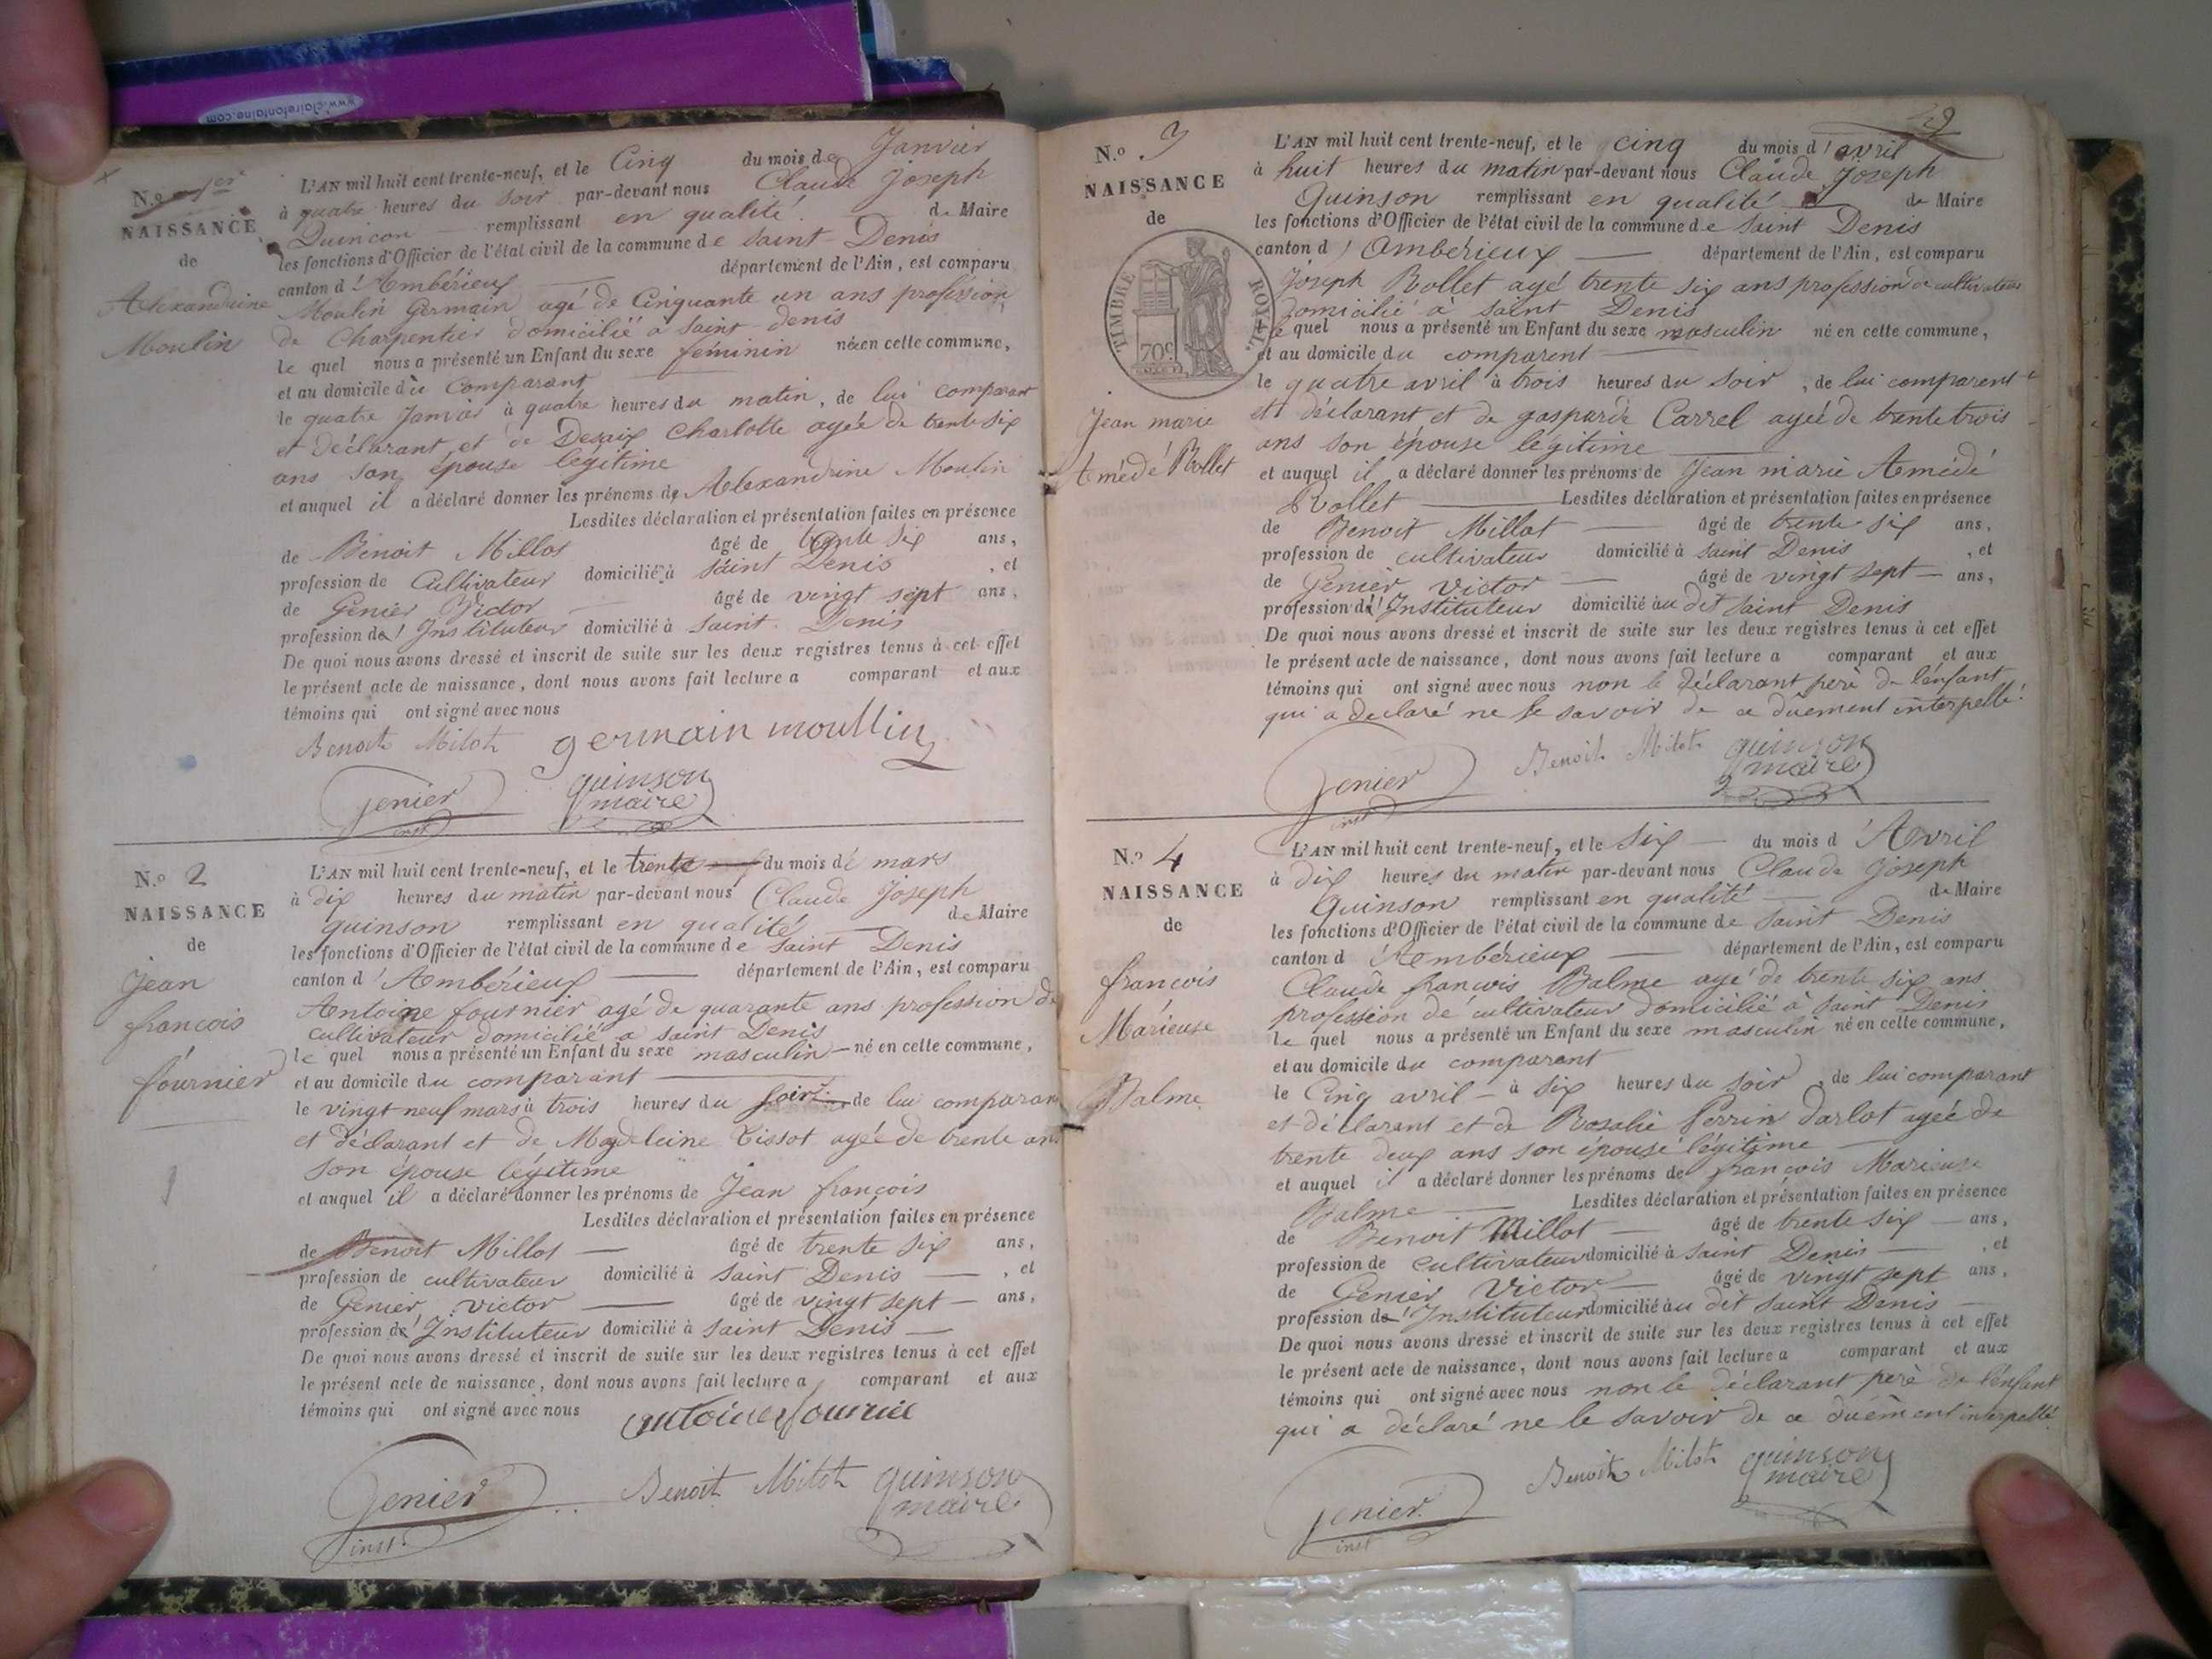 www.clairefontaine.com
N.o 1er
NAISSANCE
de
Alexandrine
Moulin
L'AN mil huit cent trente-neuf, et le Cinq du mois de Janvier
à quatre heures du soir par-devant nous Claude Joseph
Quinçon remplissant en qualité de Maire
les fonctions d'Officier de l'état civil de la commune de Saint-Denis
canton d'Ambérieux département de l'Ain, est comparu
Moulin Germain agé de Cinquante un ans profession
de Charpentier domicilié à Saint-denis
le quel nous a présenté un Enfant du sexe féminin née en cette commune,
et au domicile du Comparant
le quatre Janvier à quatre heures du matin, de lui comparant
et déclarant et de Desaix Charlotte agée de trente six
ans son épouse légitime
et auquel il a déclaré donner les prénoms de Alexandrine Moulin
Lesdites déclaration et présentation faites en présence
de Benoit Millot âgé de trente six ans,
profession de Cultivateur domicilié à Saint Denis, et
de Genier Victor âgé de vingt sept ans,
profession d'Instituteur domicilié à Saint Denis
De quoi nous avons dressé et inscrit de suite sur les deux registres tenus à cet effet
le présent acte de naissance, dont nous avons fait lecture a comparant et aux
témoins qui ont signé avec nous
Benoit Milot germain moullin
Genier quinson
inst maire
N.o 2
NAISSANCE
de
Jean
françois
fournier
L'AN mil huit cent trente-neuf, et le trente du mois de mars
à dix heures du matin par-devant nous Claude Joseph
quinson remplissant en qualité de Maire
les fonctions d'Officier de l'état civil de la commune de Saint Denis
canton d'Ambérieux département de l'Ain, est comparu
Antoine fournier agé de quarante ans profession de
cultivateur domicilié a saint Denis
le quel nous a présenté un Enfant du sexe masculin né en cette commune,
et au domicile du comparant
le vingt neuf mars à trois heures du soir de lui comparant
et déclarant et de Magdeleine Tissot agée de trente ans
son épouse légitime
et auquel il a déclaré donner les prénoms de Jean françois
Lesdites déclaration et présentation faites en présence
de Benoit Millot âgé de trente six ans,
profession de cultivateur domicilié à Saint Denis, et
de Genier victor âgé de vingt sept ans,
profession d'Instituteur domicilié à Saint Denis
De quoi nous avons dressé et inscrit de suite sur les deux registres tenus à cet effet
le présent acte de naissance, dont nous avons fait lecture a comparant et aux
témoins qui ont signé avec nous
Genier Benoit Milot quinson
inst maire
N.o 3
NAISSANCE
de
TIMBRE ROYAL.
70c
Jean marie
Amédé Rollet
L'AN mil huit cent trente-neuf, et le cinq du mois d'avril
à huit heures du matin par-devant nous Claude Joseph
Quinson remplissant en qualité de Maire
les fonctions d'Officier de l'état civil de la commune de Saint Denis
canton d'Ambérieux département de l'Ain, est comparu
Joseph Rollet agé trente six ans profession de cultivateur
domicilié à saint Denis
le quel nous a présenté un Enfant du sexe masculin né en cette commune,
et au domicile du comparent
le quatre avril à trois heures du soir, de lui comparent
et déclarant et de gasparde Carrel agée de trente trois
ans son épouse légitime
et auquel il a déclaré donner les prénoms de Jean marie Amédé
Rollet Lesdites déclaration et présentation faites en présence
de Benoit Millot âgé de trente six ans,
profession de cultivateur domicilié à saint Denis, et
de Genier victor âgé de vingt sept ans,
profession d'Instituteur domicilié au dit saint Denis
De quoi nous avons dressé et inscrit de suite sur les deux registres tenus à cet effet
le présent acte de naissance, dont nous avons fait lecture a comparant et aux
témoins qui ont signé avec nous non le déclarant père de l'énfant
qui a declaré ne le savoir de ce duement interpellé.
Genier Benoit Milot quinson
inst maire
N.o 4
NAISSANCE
de
françois
Marieuse
Balme
L'AN mil huit cent trente-neuf, et le six du mois d'Avril
à dix heures du matin par-devant nous Claude Joseph
Quinson remplissant en qualité de Maire
les fonctions d'Officier de l'état civil de la commune de Saint Denis
canton d'Ambérieux département de l'Ain, est comparu
Claude françois Balme agé de trente six ans
profession de cultivateur domicilié à saint Denis
le quel nous a présenté un Enfant du sexe masculin né en cette commune,
et au domicile du comparant
le Cinq avril à six heures du soir, de lui comparant
et déclarant et de Rosalie Perrin darlot agée de
trente deux ans son épouse légitime
et auquel il a déclaré donner les prénoms de françois Marieuse
Balme Lesdites déclaration et présentation faites en présence
de Benoit Millot âgé de trente six ans,
profession de cultivateur domicilié à saint Denis, et
de Genier Victor âgé de vingt sept ans,
profession d'Instituteur domicilié au dit saint Denis
De quoi nous avons dressé et inscrit de suite sur les deux registres tenus à cet effet
le présent acte de naissance, dont nous avons fait lecture a comparant et aux
témoins qui ont signé avec nous non le déclarant père de l'énfant
qui a déclaré ne le savoir de ce duement interpellé
Genier Benoit Milot quinson
inst maire